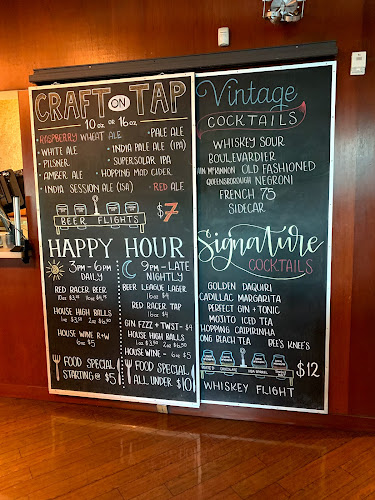 CRAFT ON TAP
10 oz OR 16 oz
• RASPBERRY WHEAT ALE
• WHITE ALE
• PILSNER
• AMBER ALE
• INDIA SESSION ALE (ISA)
• PALE ALE
• INDIA PALE ALE (IPA)
• SUPERSOLAR IPA
• HOPPING MAD CIDER
• RED ALE
BEER FLIGHTS
$7
HAPPY HOUR
3PM - 6PM
DAILY
RED RACER BEER
HOUSE HIGH BALLS
1oz $3.50 2oz $6.50
HOUSE WINE R+W
6oz $5
FOOD SPECIAL
STARTING @ $5
9PM - LATE
NIGHTLY
BEER LEAGUE LAGER
16oz $4
RED RACER TAP
16oz $4
GIN FIZZ + TWST - $4
HOUSE HIGH BALLS
1oz $3.50 2oz $6.50
HOUSE WINE - 6oz $5
FOOD SPECIAL
ALL UNDER $10
Vintage
COCKTAILS
WHISKEY SOUR
BOULEVARDIER
OLD FASHIONED
QUEENSBOROUGH NEGRONI
FRENCH 75
SIDECAR
Signature
COCKTAILS
GOLDEN DAQUIRI
CADILLAC MARGARITA
PERFECT GIN + TONIC
MOJITO ICED TEA
HOPPING CAIPIRINHA
LONG BEACH TEA
BEE'S KNEE'S
$12
WHISKEY FLIGHT